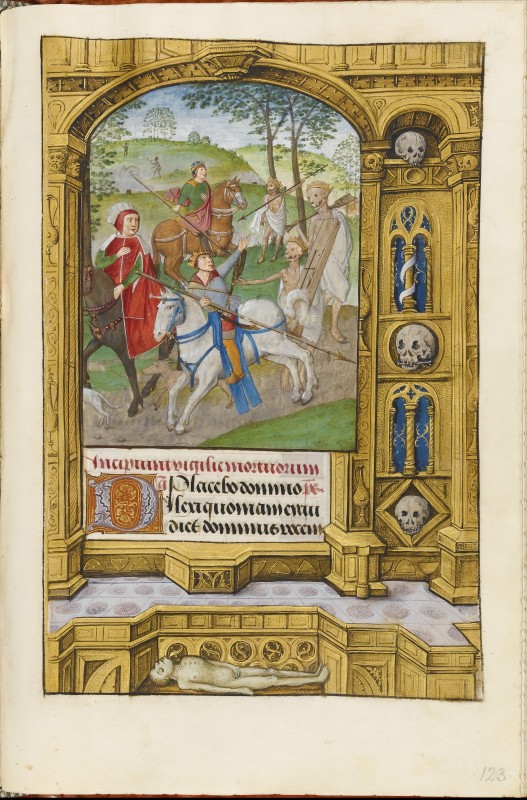 Incipiunt vigilie mortuorum
a̅ Placebo domino ps̅
Ilexi quoniam exau
diet dominus vocem
123